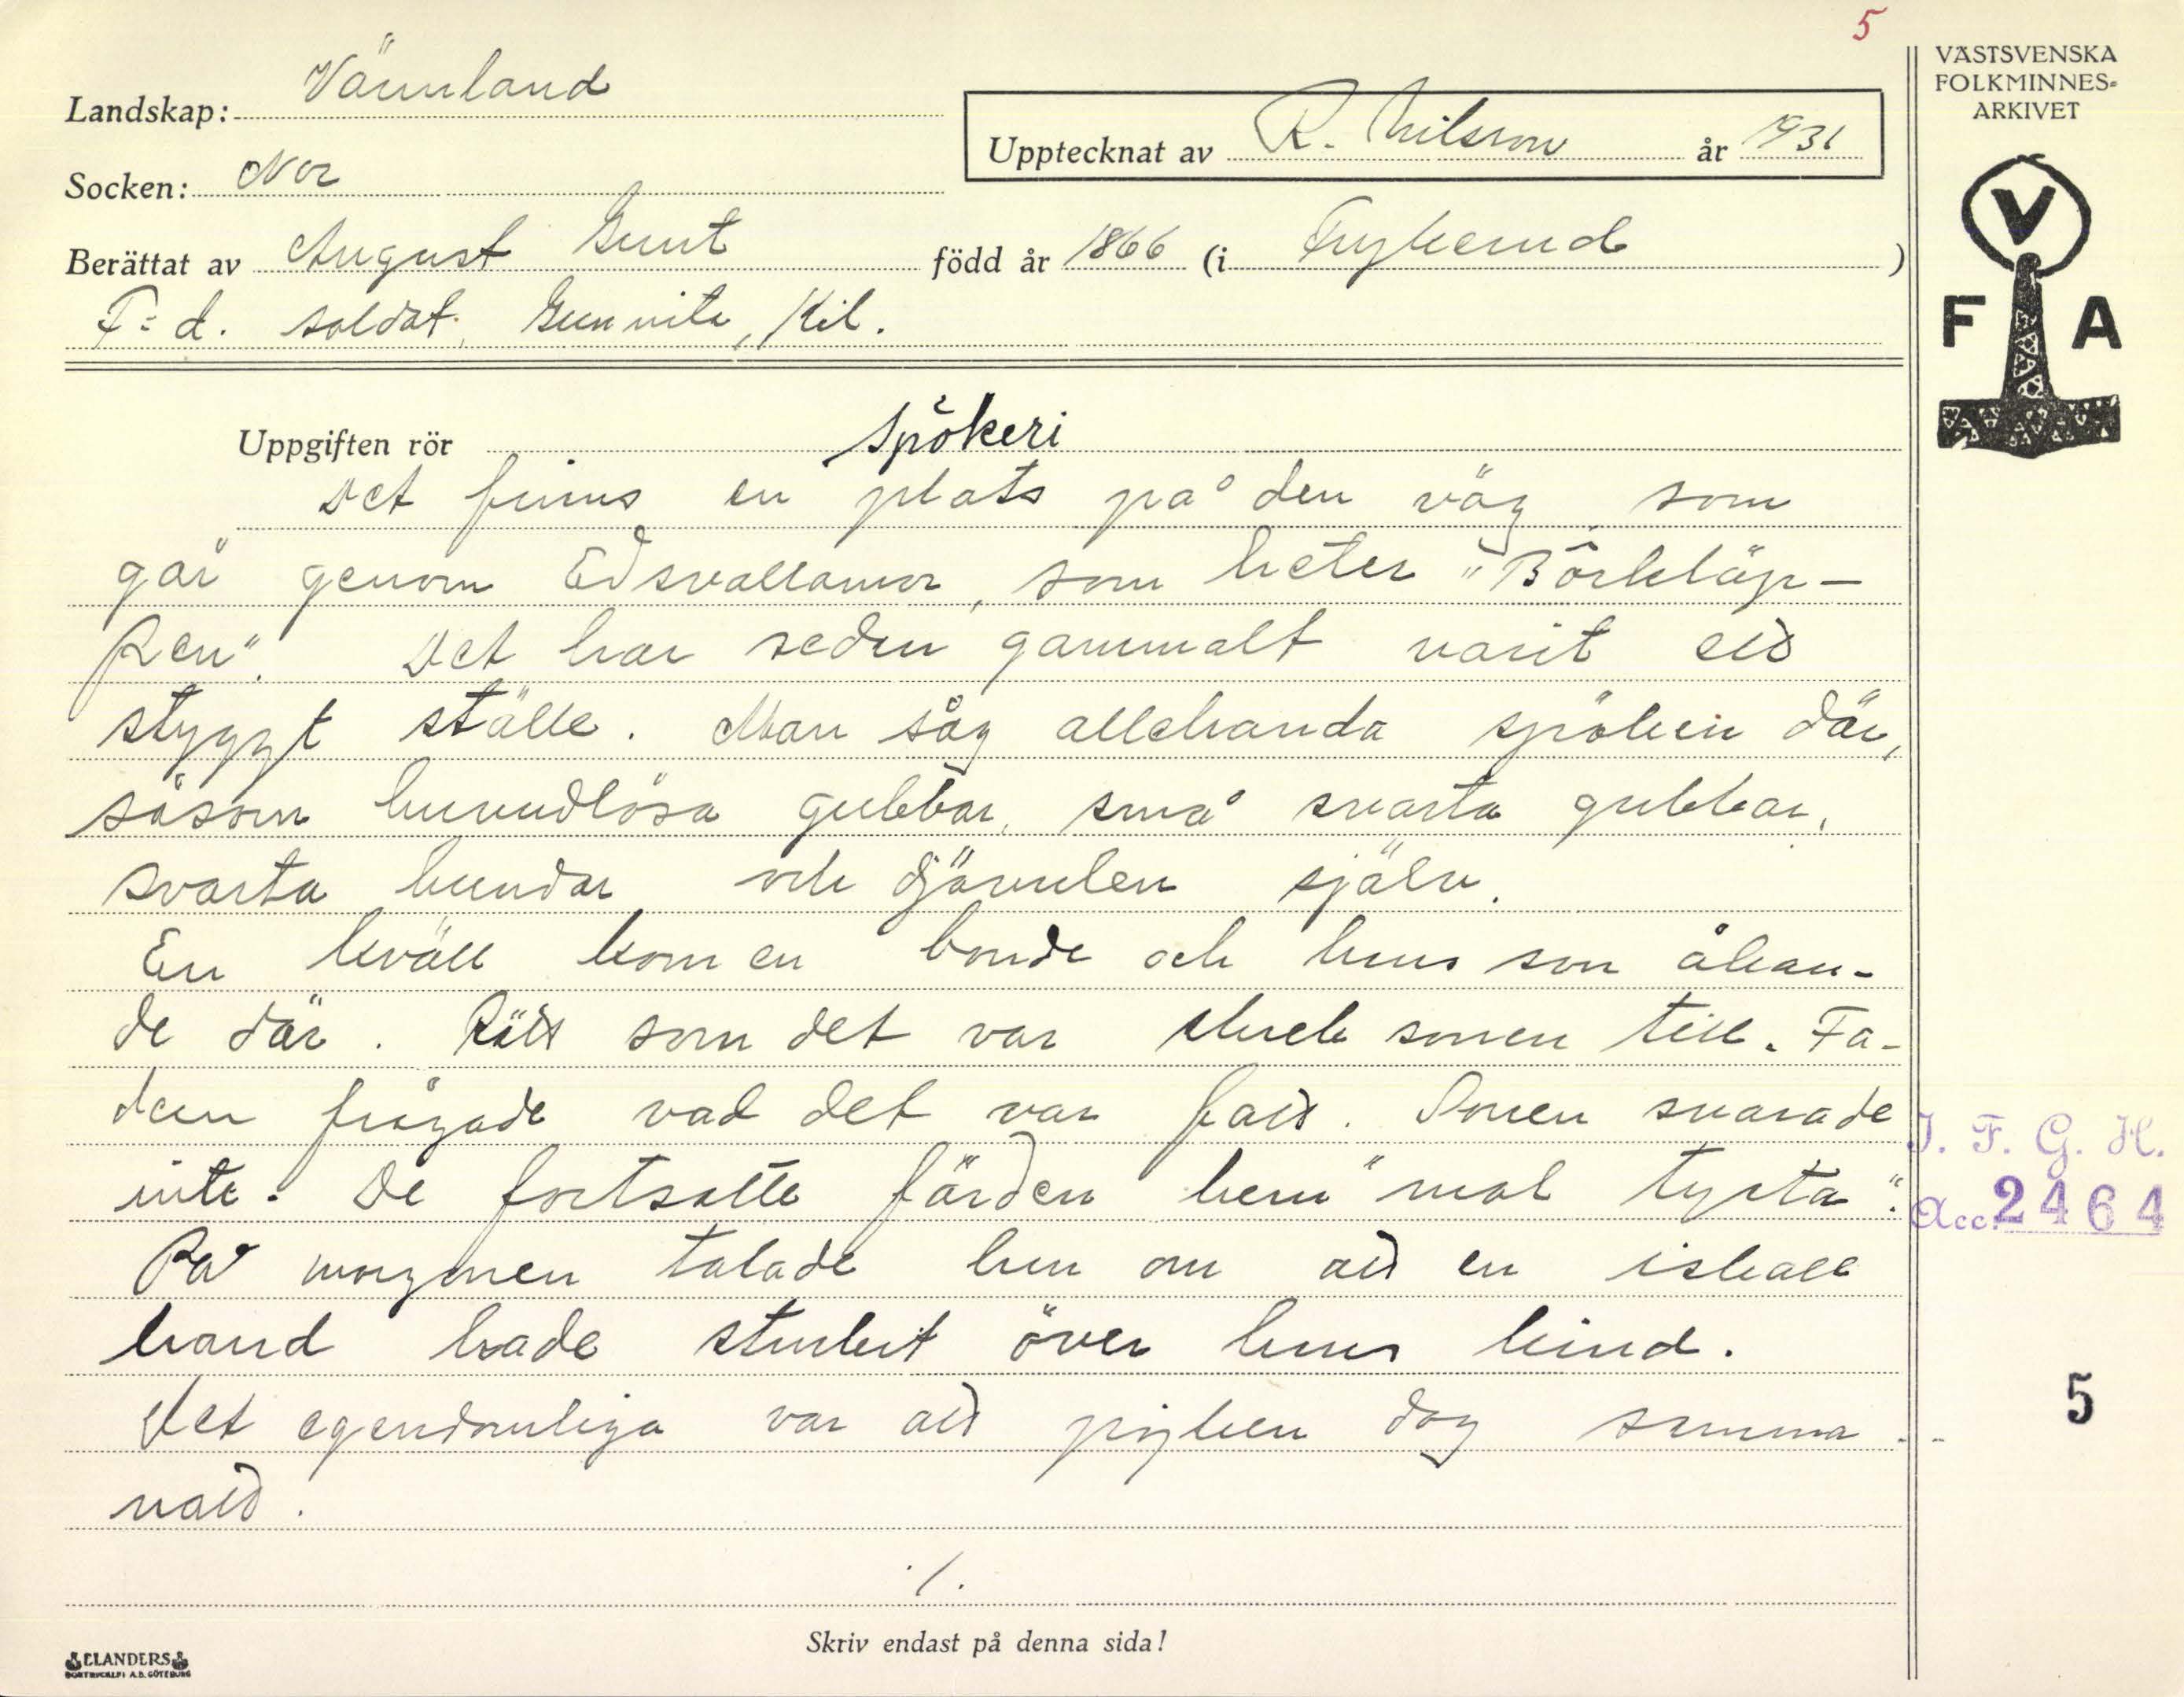 5
VÄSTSVENSKA
FOLKMINNES-
ARKIVET
Landskap: Värmland
Upptecknat av R. Nilsson år 1931
Socken: Nor
Berättat av August Gunt född år 1866 (i Frykerud)
F. d. soldat, Gunnita, Kil.
V
F A
Uppgiften rör spökeri
Det finns en plats på den väg, som
går genom Edsvallamon, som heter "Börkläp-
pen". Det har sedan gammalt varit ett
styggt ställe. Man såg allehanda spöken där,
såsom huvudlösa gubbar, små svarta gubbar,
svarta hundar och djävulen själv.
En kväll kom en bonde och hans son åkan-
de där. Rätt som det var skrek sonen till. Fa-
dern frågade vad det var fatt. Sonen svarade
inte. De fortsatte färden hem "mol tysta".
På morgonen talade han om att en iskall
hand hade strukit över hans kind.
Det egendomliga var att pojken dog samma
natt.
./.
J. F. G. H.
Acc. 2464
5
Skriv endast på denna sida!
ELANDERS
BOKTRYCKERI A.B. GÖTEBORG